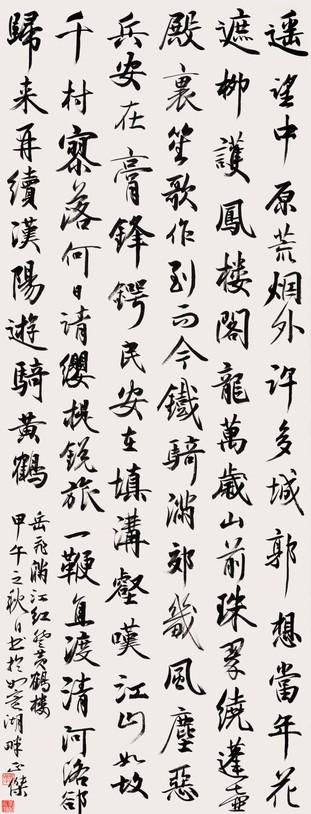 遥望中原荒烟外许多城郭想當年花
遮柳護鳳楼閣龍萬歲山前珠翠繞蓬壶
殿裏笙歌作到而今鐵騎满郊畿風塵惡
兵安在膏鋒鍔民安在填溝壑嘆江山如故
千村寥落何日请缨提鋭旅一鞭直渡清河洛郤
歸来再續漢陽遊騎黄鶴
岳飛满江红登黄鶴楼
甲午之秋日书於如意湖畔正傑